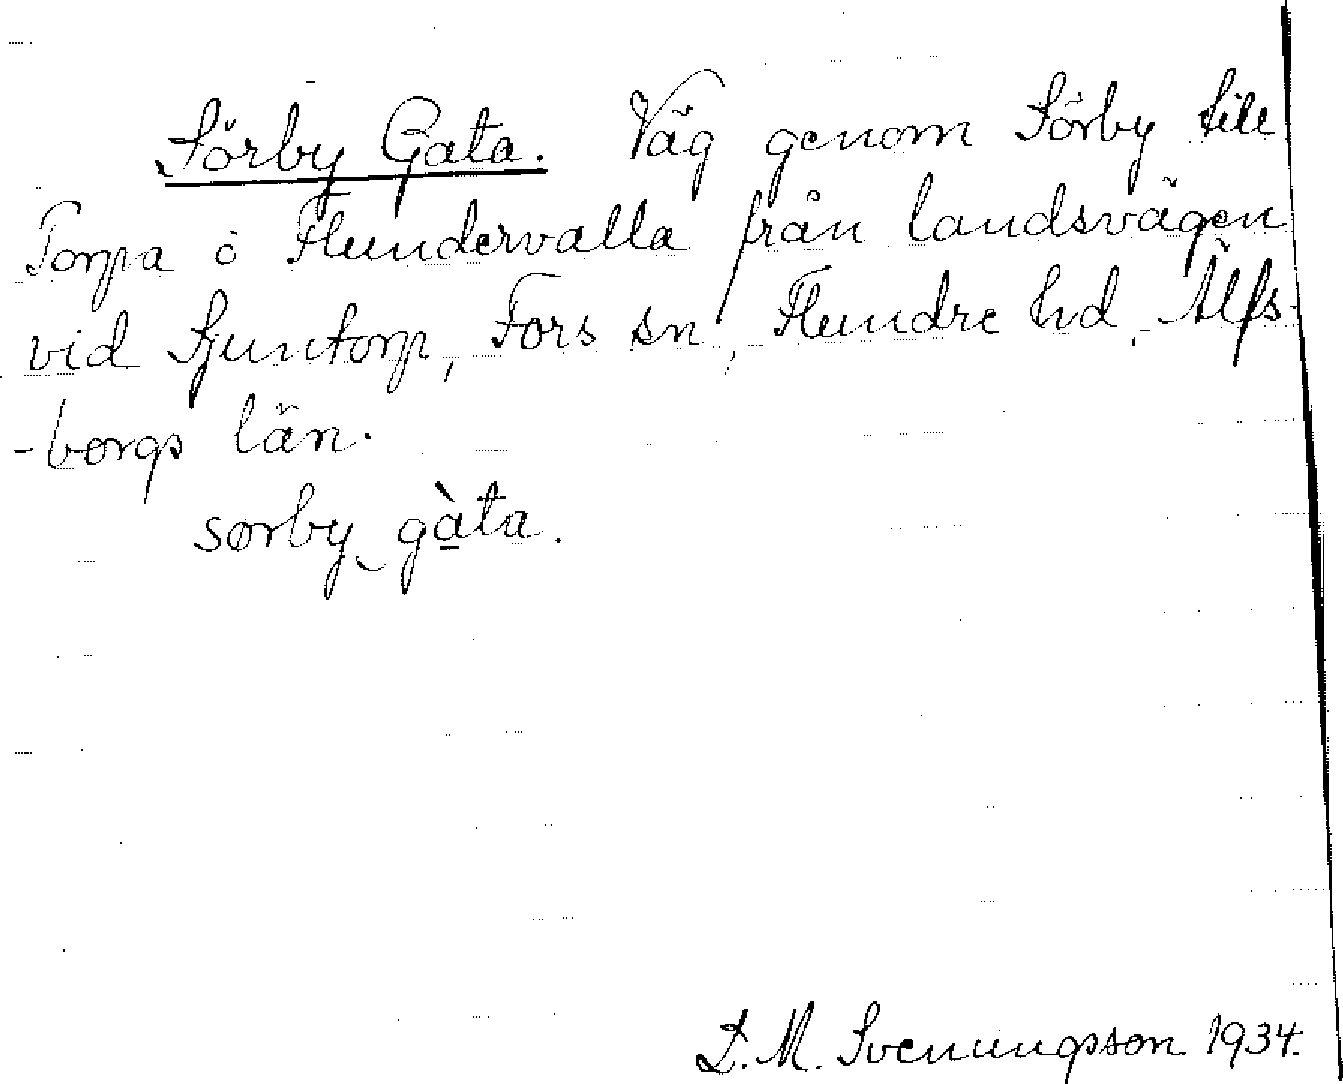 Sörby Gata. Väg genom Sörby till
Torpa ö Flundervalla från landsvägen
vid Sjuntorp, Fors sn, Flundre hd, Älfs-
-borgs län.
sørby gàta.
D. M. Svenungsson 1934.